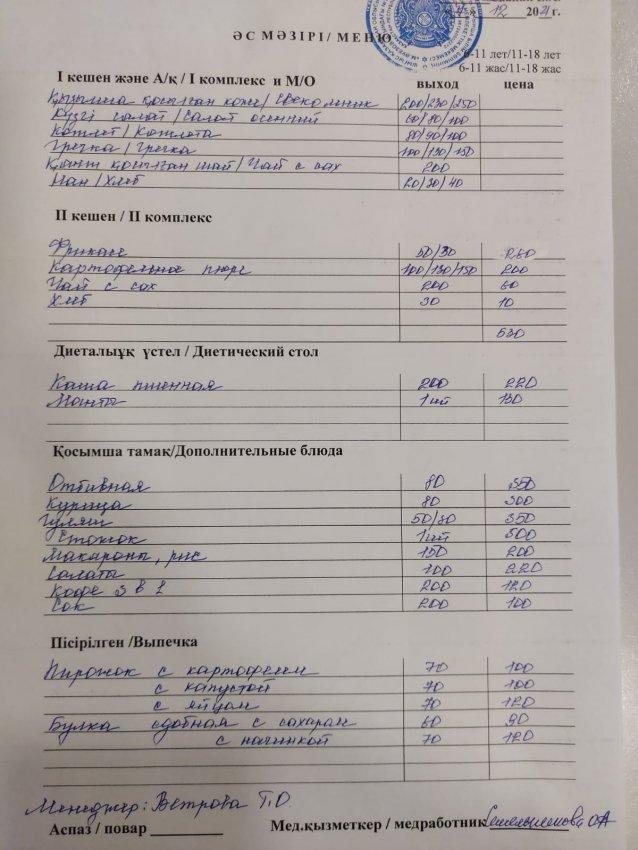 12 2021 г.
ӘС МӘЗІРІ / МЕНЮ
6-11 лет/11-18 лет
6-11 жас/11-18 жас
І кешен және А/қ / І комплекс и М/О выход цена
Қызылша қосылған көже / Свекольник 200/230/250
Күзгі салат / Салат осенний 60/80/100
Котлет / Котлета 80/90/100
Гречка / Гречка 100/130/150
Қант қосылған шай / Чай с сах 200
Нан / Хлеб 20/30/40
ІІ кешен / ІІ комплекс
Фрикасе 50/30 260
Картофельное пюре 100/130/150 200
Чай с сах 200 60
Хлеб 30 10
530
Диеталыұқ үстел / Диетический стол
Каша пшенная 200 220
Манты 1 шт 130
Қосымша тамақ/Дополнительные блюда
Отбивная 80 350
Курица 80 300
Гуляш 50/30 350
1 шт 500
Макароны, рис 150 200
Салаты 100 220
Кофе 3 в 1 200 120
Сок 200 100
Пісірілген /Выпечка
Пирожок с картофелем 70 100
с капустой 70 100
с яйцом 70 120
Булка сдобная с сахаром 60 90
с начинкой 70 120
Менеджер: Ветрова Т.О.
Аспаз / повар
Мед.қызметкер / медработник